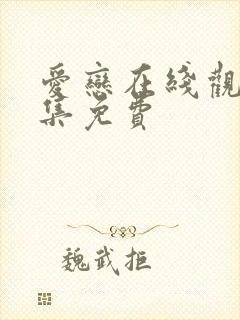 愛戀在綫觀
集免費
魏武拒